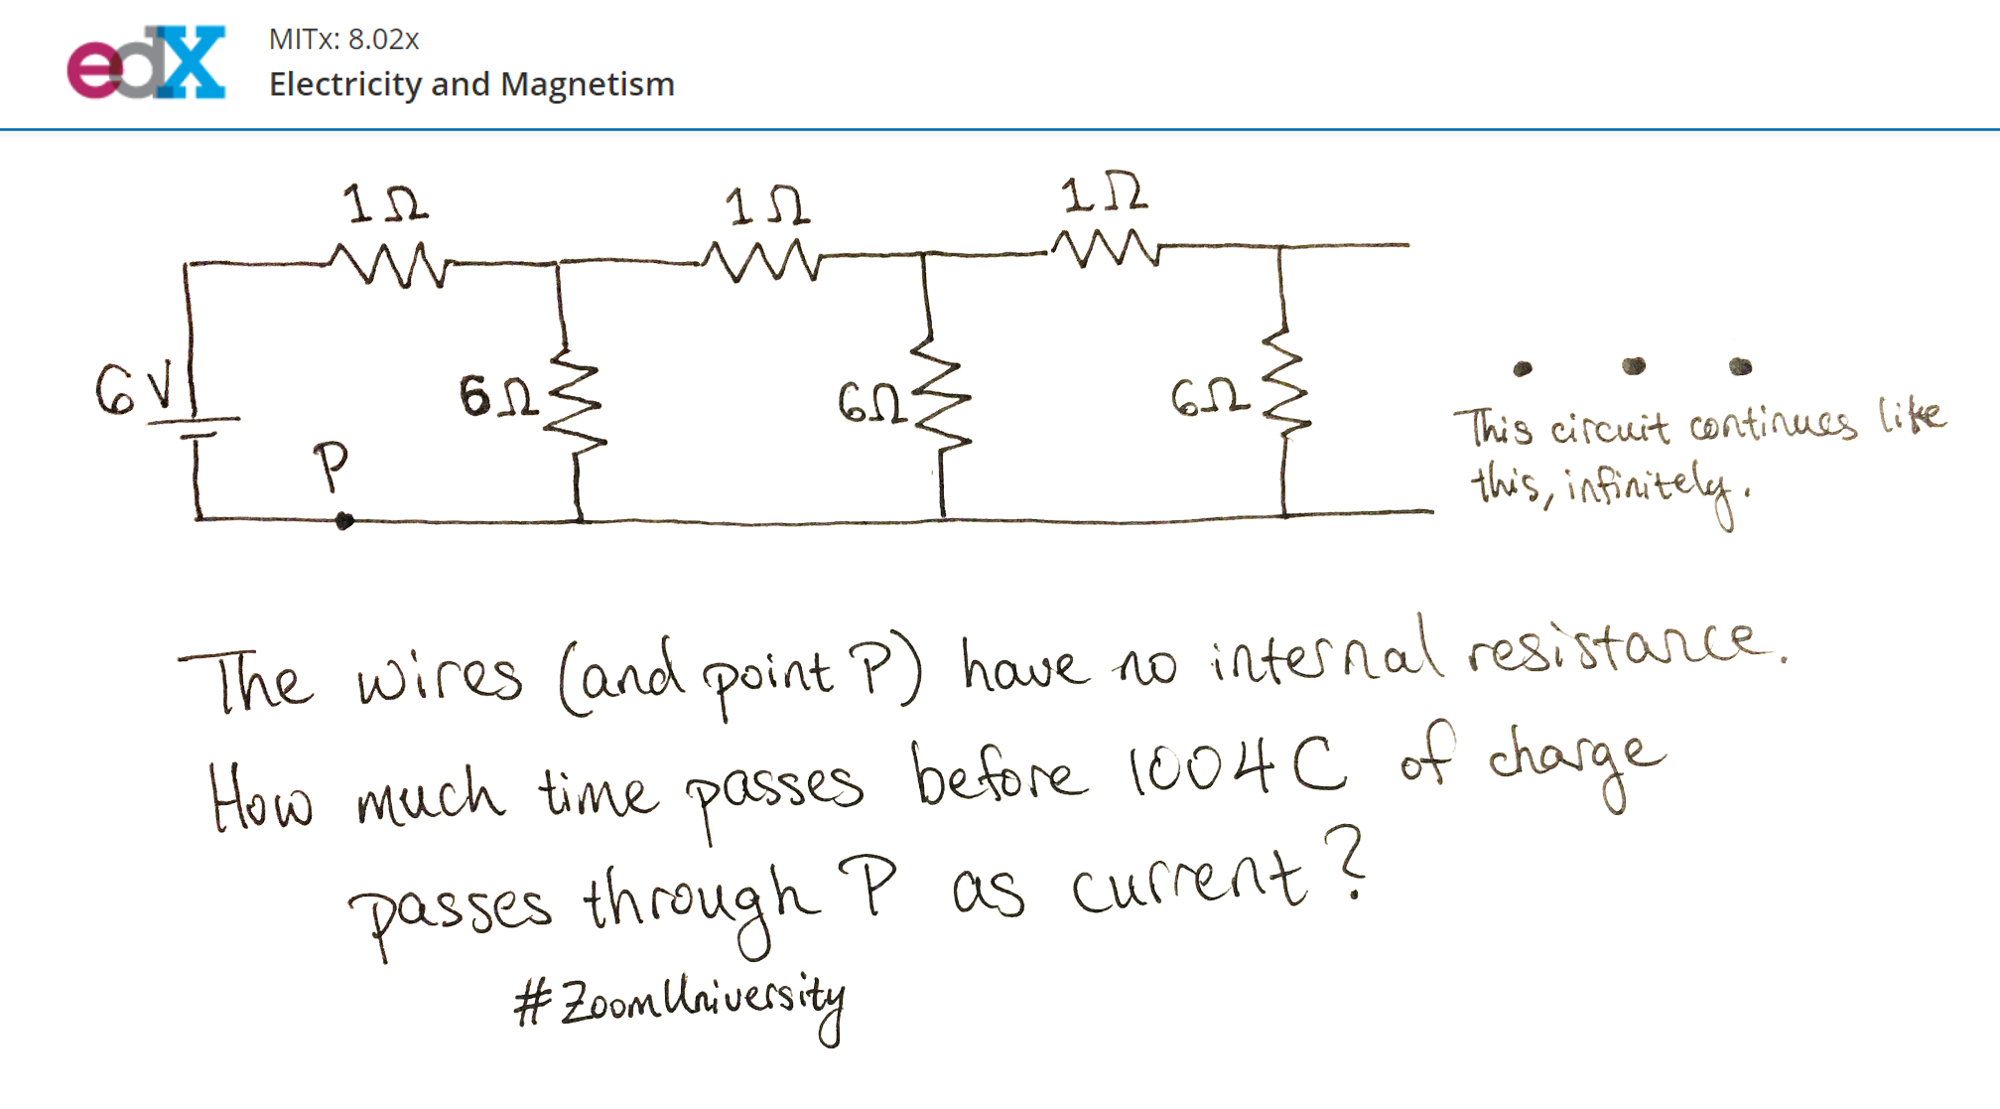 edX
MITx: 8.02x
Electricity and Magnetism
1Ω
1Ω
1Ω
6V
P
6Ω
6Ω
6Ω
This circuit continues like
this, infinitely.
The wires (and point P) have no internal resistance.
How much time passes before 1004C of charge
passes through P as current?
#ZoomUniversity